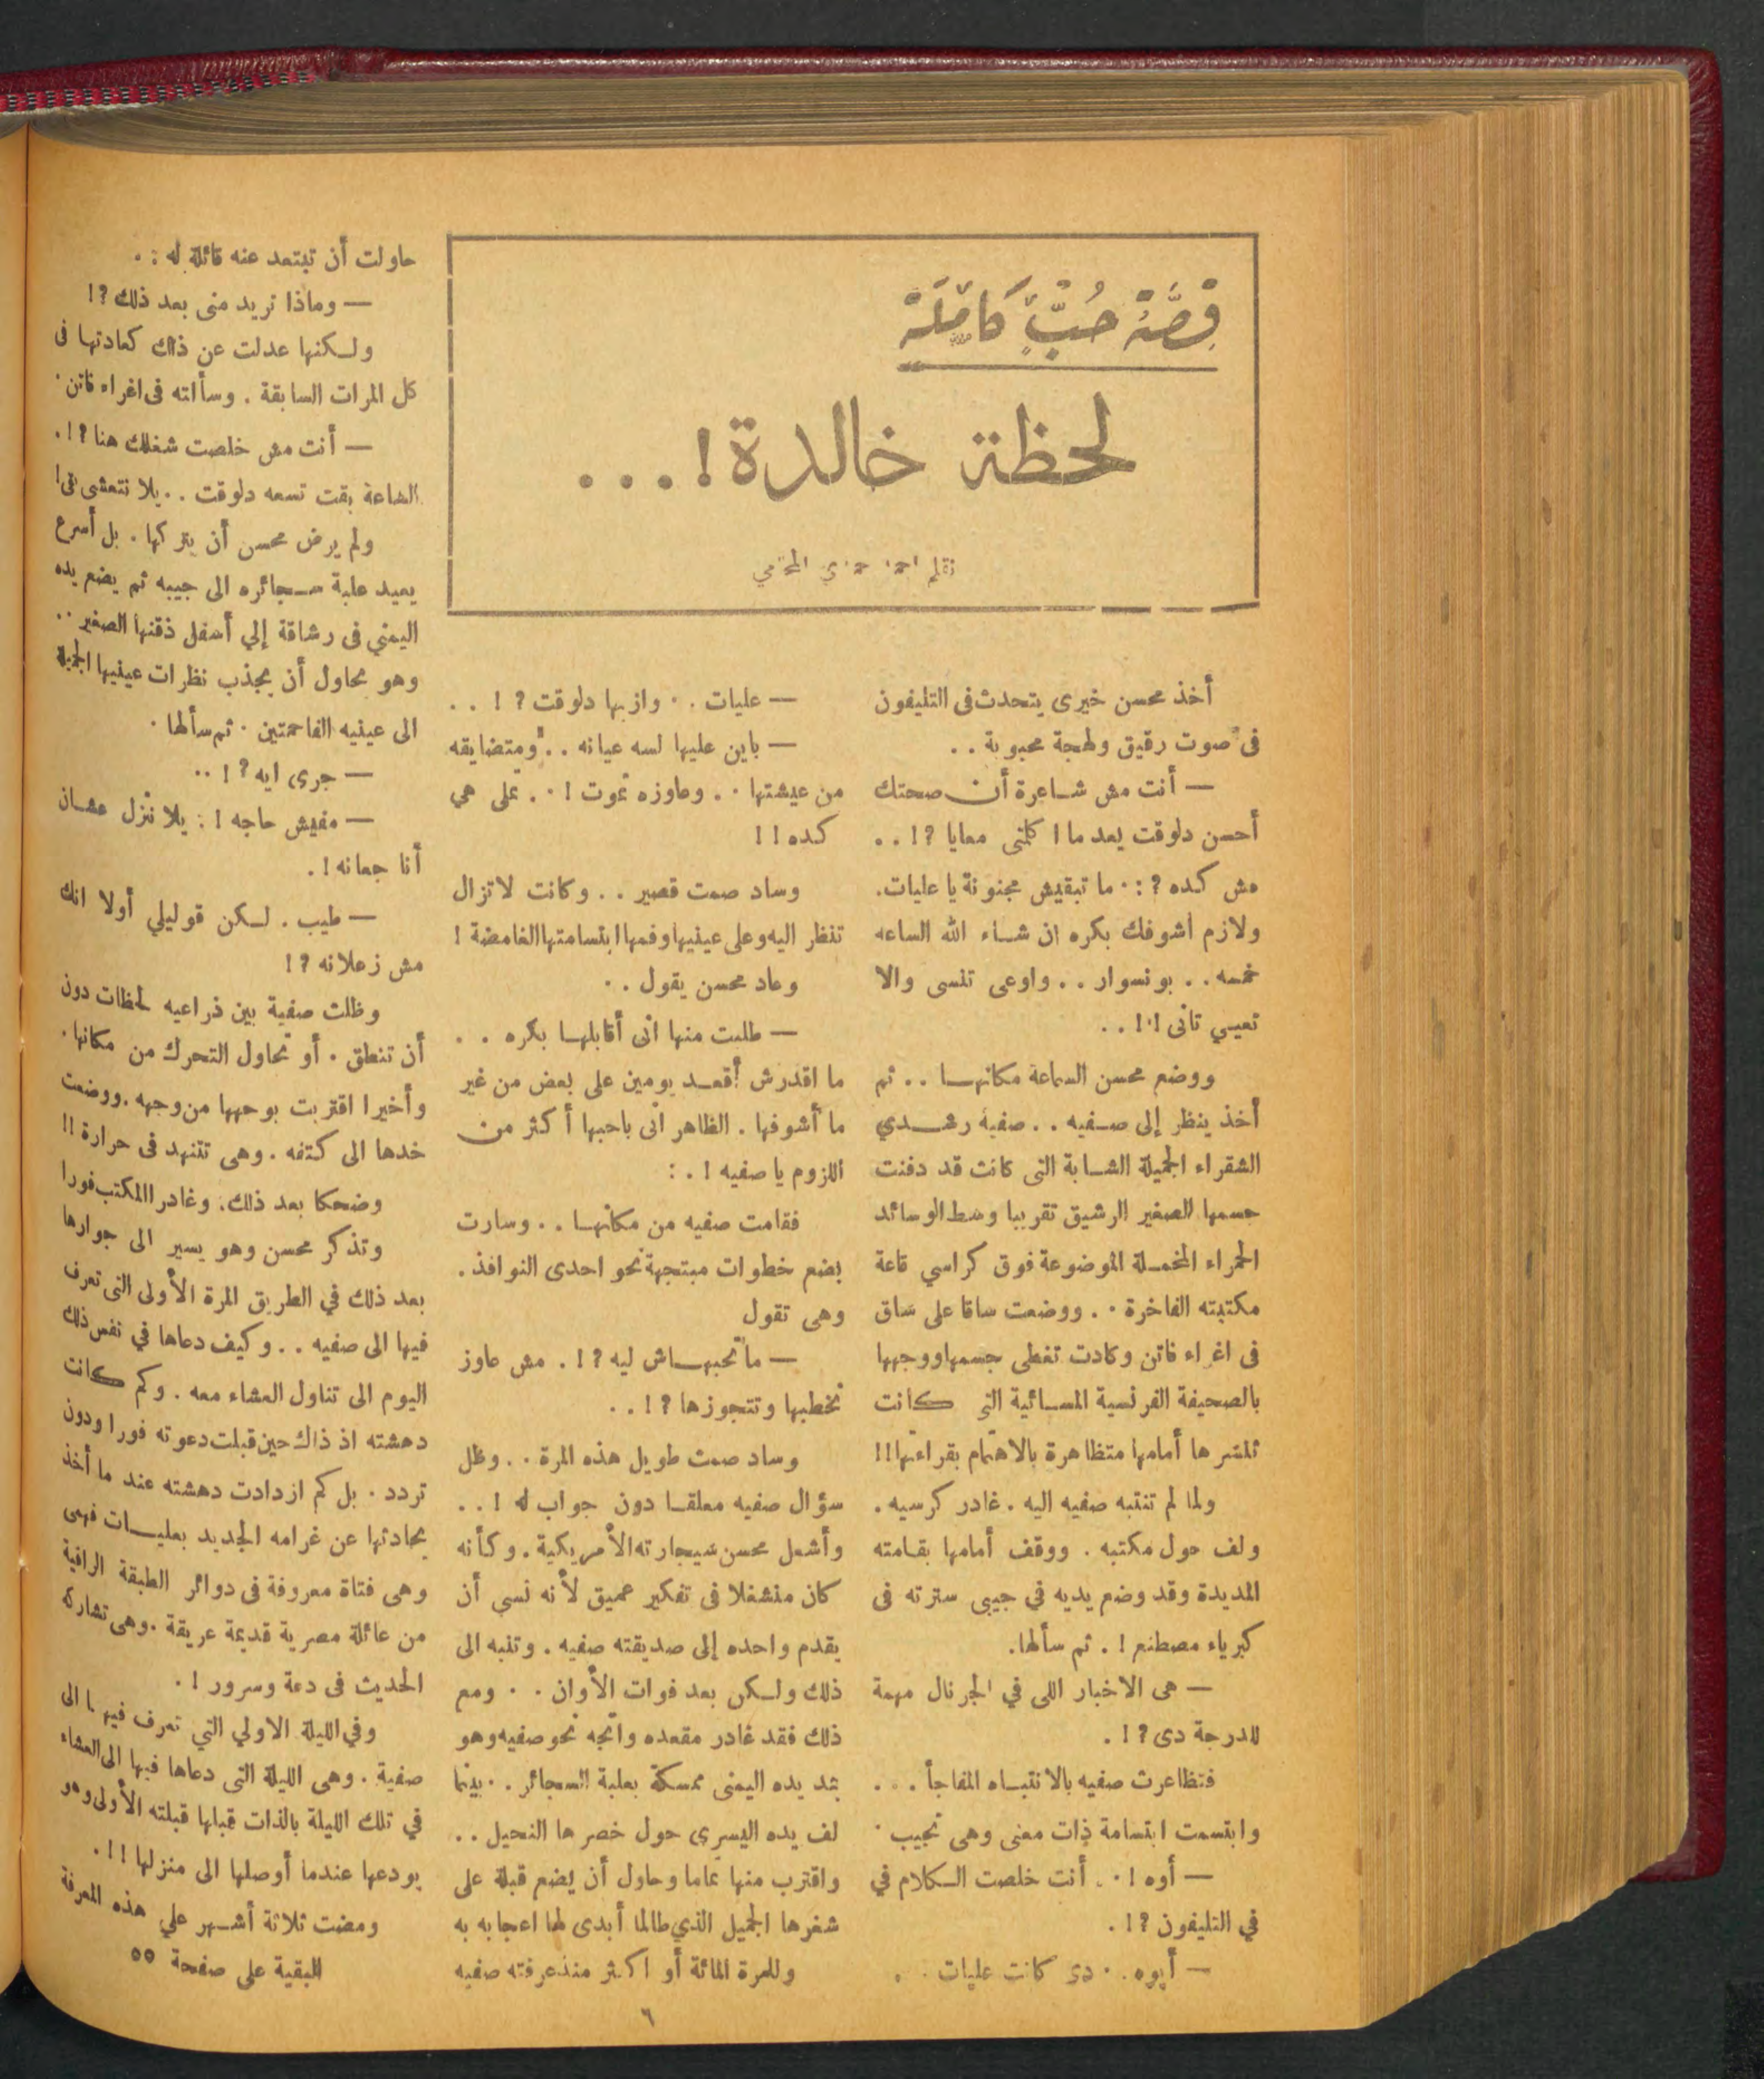 قِصَّةُ حُبٍّ كَامِلَة
لحظة خالدة!...
بقلم احمد حمدي المحامي
أخذ محسن خيرى يتحدث فى التليفون
فى صوت رقيق ولهجة محبوبة . .
— أنت مش شاعرة أن صحتك
أحسن دلوقت بعد ما اكلمتى معايا ?! . .
مش كده ? : . ما تبقيش مجنونة يا عليات.
ولازم أشوفك بكره ان شاء الله الساعه
خمسه . . بونسوار . . واوعى تنسى والا
تعيي تانى !! . .
ووضع محسن السماعة مكانها . . ثم
أخذ ينظر إلى صفيه . . صفية رشدي
الشقراء الجميلة الشابة التى كانت قد دفنت
جسمها الصغير الرشيق تقريبا وسط الوسائد
الحمراء المخملة الموضوعة فوق كراسي قاعة
مكتبته الفاخرة . . ووضعت ساقا على ساق
فى اغراء فاتن وكادت تغطى جسمها ووجهها
بالصحيفة الفرنسية المسائية التى كانت
تنشرها أمامها متظاهرة بالاهتمام بقراءتها !!!
ولما لم تنتبه صفيه اليه . غادر كرسيه .
ولف حول مكتبه . ووقف أمامها بقامته
المديدة وقد وضع يديه في جيبى سترته فى
كبرياء مصطنع ! . ثم سألها.
— هى الاخبار اللى في الجرنال مهمة
للدرجة دى ?! .
فتظاعرت صفيه بالانتباه المفاجأ . . .
وابتسمت ابتسامة ذات معنى وهى تجيب .
— أوه ! . . أنت خلصت الكلام في
في التليفون ?! .
— أيوه . . دى كانت عليات . .
— عليات . . وازيها دلوقت ? ! . .
— باين عليها لسه عيانه . . ومتضايقه
من عيشتها . . وعاوزه تموت ! . . على هي
كده !!
وساد صمت قصير . . وكانت لاتزال
تنظر اليه وعلى عينيها وفمها ابتسامتها الغامضة !
وعاد محسن يقول . .
— طلبت منها انى أقابلها بكره . .
ما اقدرش أقعد يومين على بعض من غير
ما أشوفها . الظاهر انى باحبها أكثر من
اللزوم يا صفيه ! . :
فقامت صفيه من مكانها . . وسارت
بضع خطوات متجهة نحو احدى النوافذ.
وهى تقول
— ماتحبهاش ليه ?! . مش عاوز
تخطبها وتتجوزها ?! . .
وساد صمت طويل هذه المرة . . وظل
سؤال صفيه معلقا دون جواب له ! . .
وأشعل محسن سيجارته الأمريكية . وكأنه
كان منشغلا فى تفكير عميق لأنه نسى أن
يقدم واحده إلى صديقته صفيه . وتنبه الى
ذلك ولكن بعد فوات الأوان . . ومع
ذلك فقد غادر مقعده واتجه نحو صفيه وهو
يمد يده اليمنى ممسكة بعلبة السجائر . . بينما
لف يده اليسرى حول خصرها النحيل . .
واقترب منها تماما وحاول أن يضع قبلة على
شغرها الجميل الذي طالما أبدى لها اعجابه به
وللمرة المائة أو اكثر منذ عرفته صفيه
حاولت أن تبتعد عنه قائلة له : .
— وماذا تريد منى بعد ذلك ?!
ولكنها عدلت عن ذلك كعادتها فى
كل المرات السابقة . وسألته فى اغراء فاتن .
— أنت مش خلصت شغلك هنا ?! .
الساعة بقت تسعه دلوقت . . يلا نتعشى بقى!
ولم يرض محسن أن يتركها . بل أسرع
يعيد علبة سجائره الى جيبه ثم يضع يده
اليمني فى رشاقة إلي أسفل ذقنها الصغير . .
وهو يحاول أن يجذب نظرات عينيها الجميلة
الى عينيه الفاحمتين . ثم سألها .
— جرى ايه ?! . .
— مفيش حاجه ! : يلا ننزل عشان
أنا جعانه ! .
— طيب . لكن قوليلي أولا انك
مش زعلانه ?!
وظلت صفية بين ذراعيه لحظات دون
أن تنطق . أو تحاول التحرك من مكانها .
وأخيرا اقتربت بوجهها من وجهه . ووضعت
خدها الى كتفه . وهى تتنهد فى حرارة !!
وضحكا بعد ذلك . وغادرا المكتب فورا
وتذكر محسن وهو يسير الى جوارها
بعد ذلك في الطريق المرة الأولى التى تعرف
فيها الى صفيه . . وكيف دعاها في نفس ذلك
اليوم الى تناول العشاء معه . وكم كانت
دهشته اذ ذاك حين قبلت دعوته فورا ودون
تردد . بل كم ازدادت دهشته عند ما أخذ
يحادثها عن غرامه الجديد بعليات فهمى
وهى فتاة معروفة فى دوائر الطبقة الراقية
من عائلة مصرية قديمة عريقة . وهى تشاركه
الحديث فى دعة وسرور ! .
وفي الليلة الاولي التي تعرف فيها الى
صفية . وهى الليلة التى دعاها فيها الى العشاء
في تلك الليلة بالذات قبلها قبلته الأولى وهو
يودعها عندما أوصلها الى منزلها !! .
ومضت ثلاثة أشهر علي هذه المعرفة
البقية على صفحة ٥٥
٦